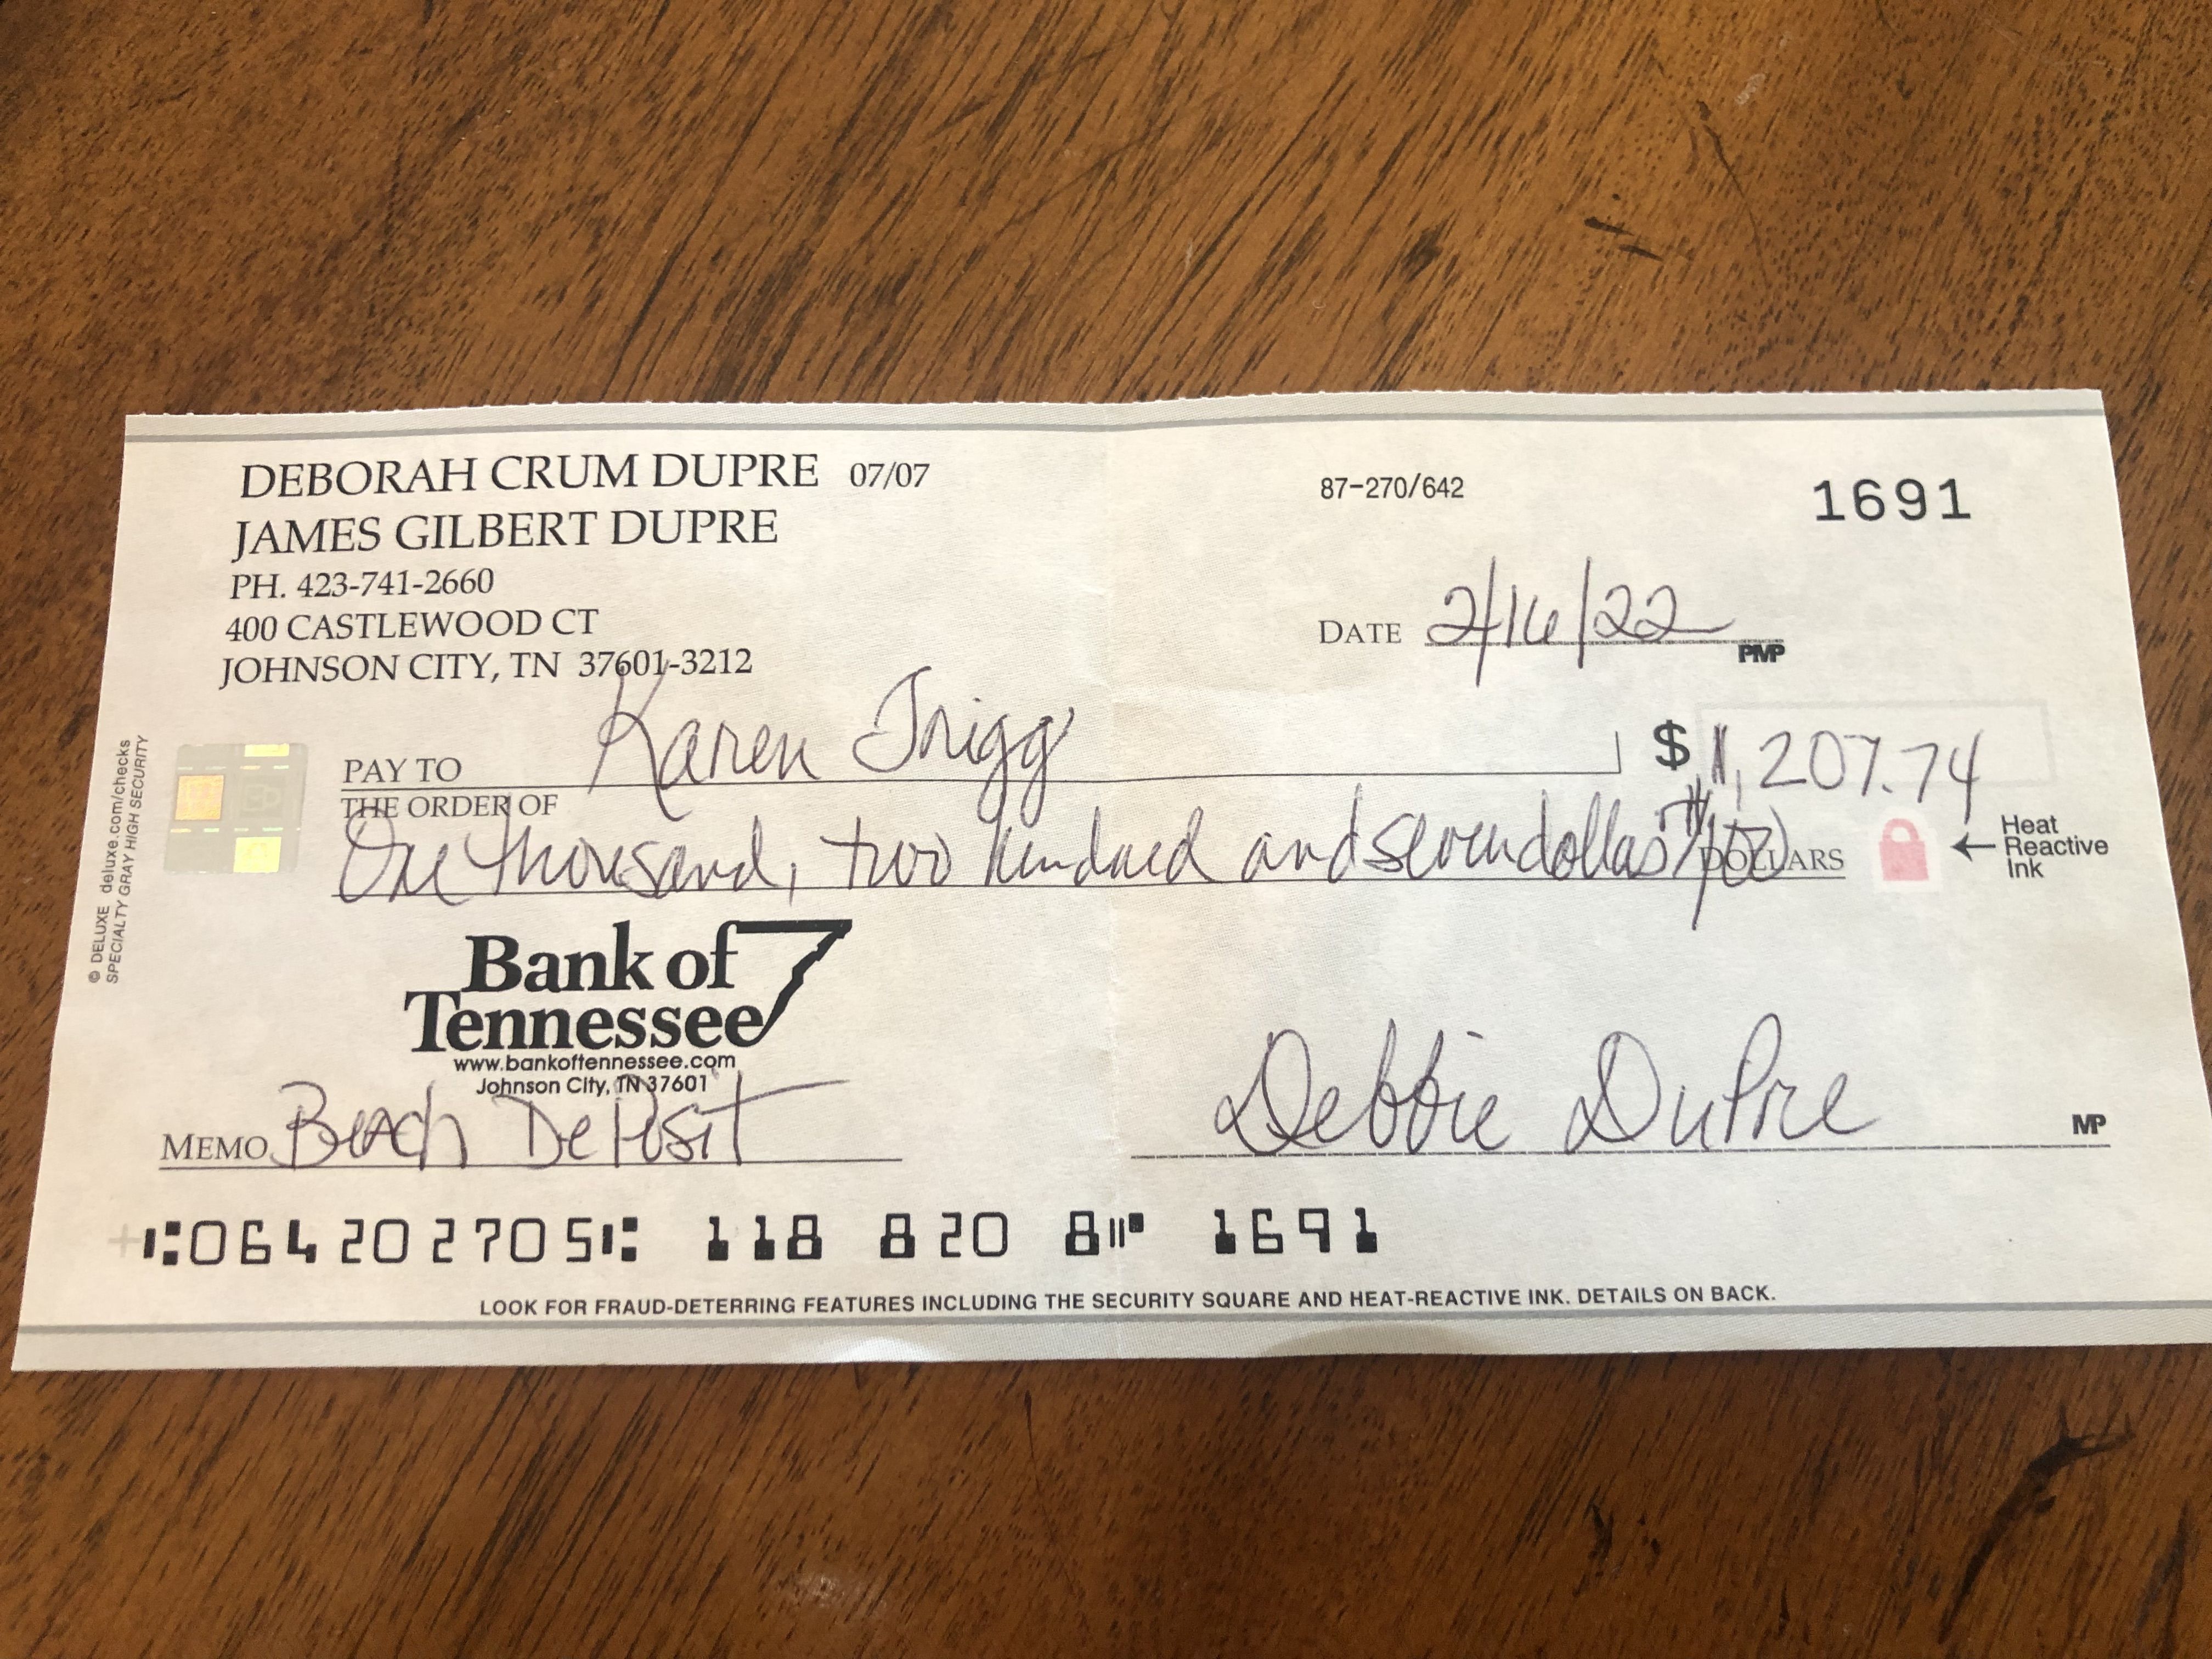 DEBORAH CRUM DUPRE 07/07
JAMES GILBERT DUPRE
PH. 423-741-2660
400 CASTLEWOOD CT
JOHNSON CITY, TN 37601-3212
87-270/642
1691
DATE 2/16/22
PMP
PAY TO THE ORDER OF Karen Trigg
$ 1,207.74
One thousand, two hundred and seven dollars 74/100 DOLLARS
Heat
Reactive
Ink
© DELUXE deluxe.com/checks
SPECIALTY GRAY HIGH SECURITY
Bank of
Tennessee
www.bankoftennessee.com
Johnson City, TN 37601
MEMO Beach DePosit
Debbie DuPre
MP
⑆064202705⑆ 118 820 8⑈ 1691
LOOK FOR FRAUD-DETERRING FEATURES INCLUDING THE SECURITY SQUARE AND HEAT-REACTIVE INK. DETAILS ON BACK.